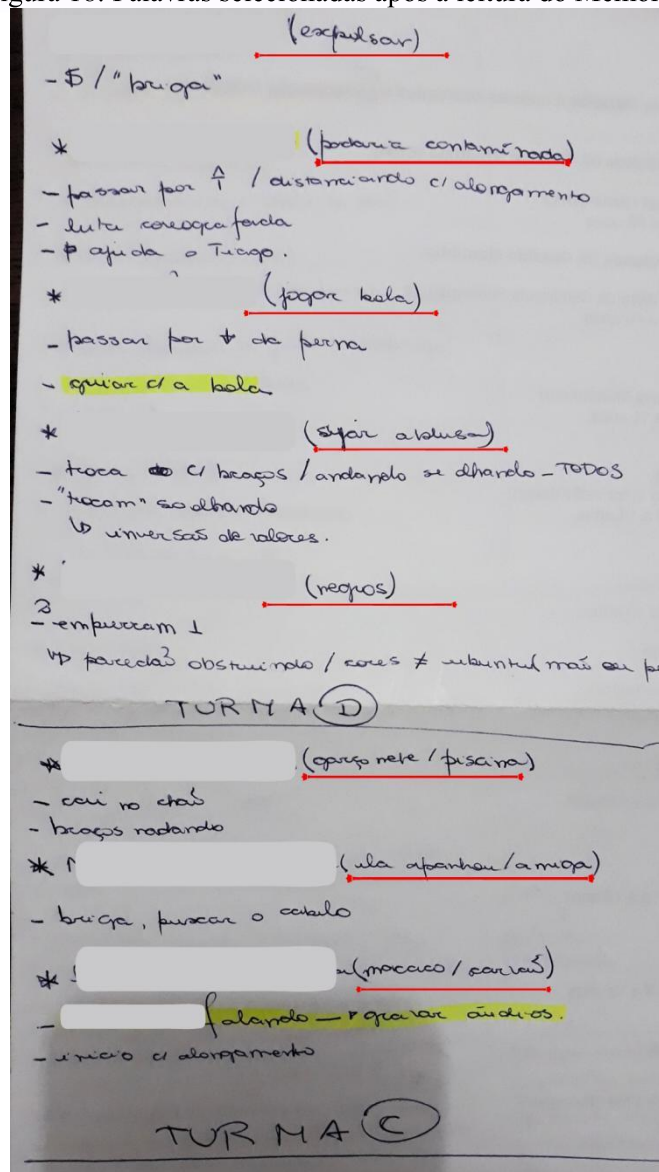 gura 16: Palavras selecionadas após a leitura do Memor
(expulsar)
- $ / "briga"
* (padaria contaminada)
- passar por / distanciando c/ alongamento
- luta coreografada
- ajuda o Tiago.
* (jogar bola)
- passar por ↓ da perna
- guiar c/ a bola
* (sujar a blusa)
- troca c/ braços / andando se olhando - TODOS
- "trocam" so olhando
↳ inversão de valores.
*
(negros)
3
- empurram 1
↳ paredão obstruindo / cores ≠ ubuntu mão ou p
TURMA D
* (garçonete / piscina)
- cai no chão
- braços nadando
* (ela apanhou / amiga)
- briga, puxar o cabelo
* (macaco / carvão)
- falando → gravar áudios.
- inicio c/ alongamento
TURMA C